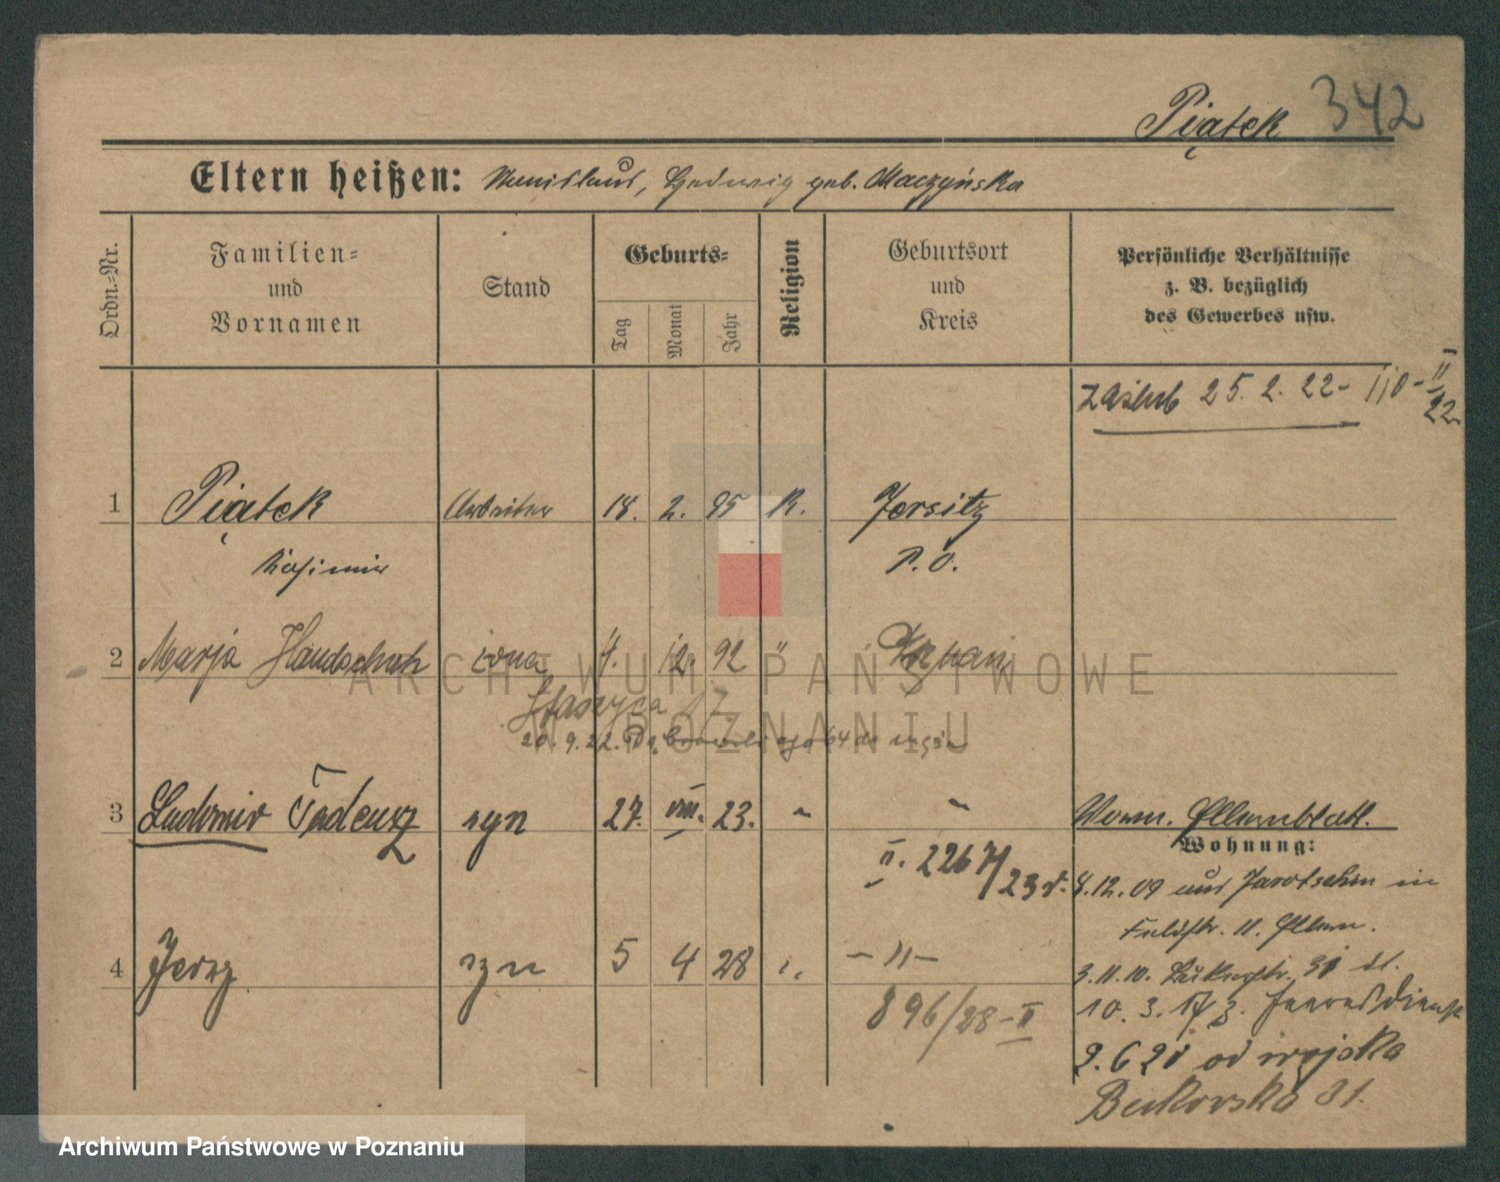 Piątek 342
Eltern heißen: Stanislaus, Hedwig geb. Maczyńska
Ordn.-Nr.
Familien-
und
Vornamen
Stand
Geburts-
Tag
Monat
Jahr
Religion
Geburtsort
und
Kreis
Persönliche Verhältnisse
z. B. bezüglich
des Gewerbes usw.
zaślub 25. 2. 22 - 110 - II
22
1 Piątek Arbeiter 18. 2. 95 K. Jersitz
Kasimir P. O.
2 Marja Handschuh żona 12. 92 " Poznań
Staszyca 17
20. 9. 22. Dąbrowskiego 64
3 Ludomir Tadeusz syn 27. VIII. 23. " " Vorm. Elternblatt.
Wohnung:
II. 2267/23 r. 12. 09 aus Jarotschin in
Feldstr. 11. Eltern.
4 Jerzy syn 5 4 28 " - " - 3. 11. 10.
896/28 - II 10. 3. 17 z. Heeresdienst
2. 6 21 od wojska
Bukowska 31.
ARCHIWUM PAŃSTWOWE
W POZNANIU
Archiwum Państwowe w Poznaniu